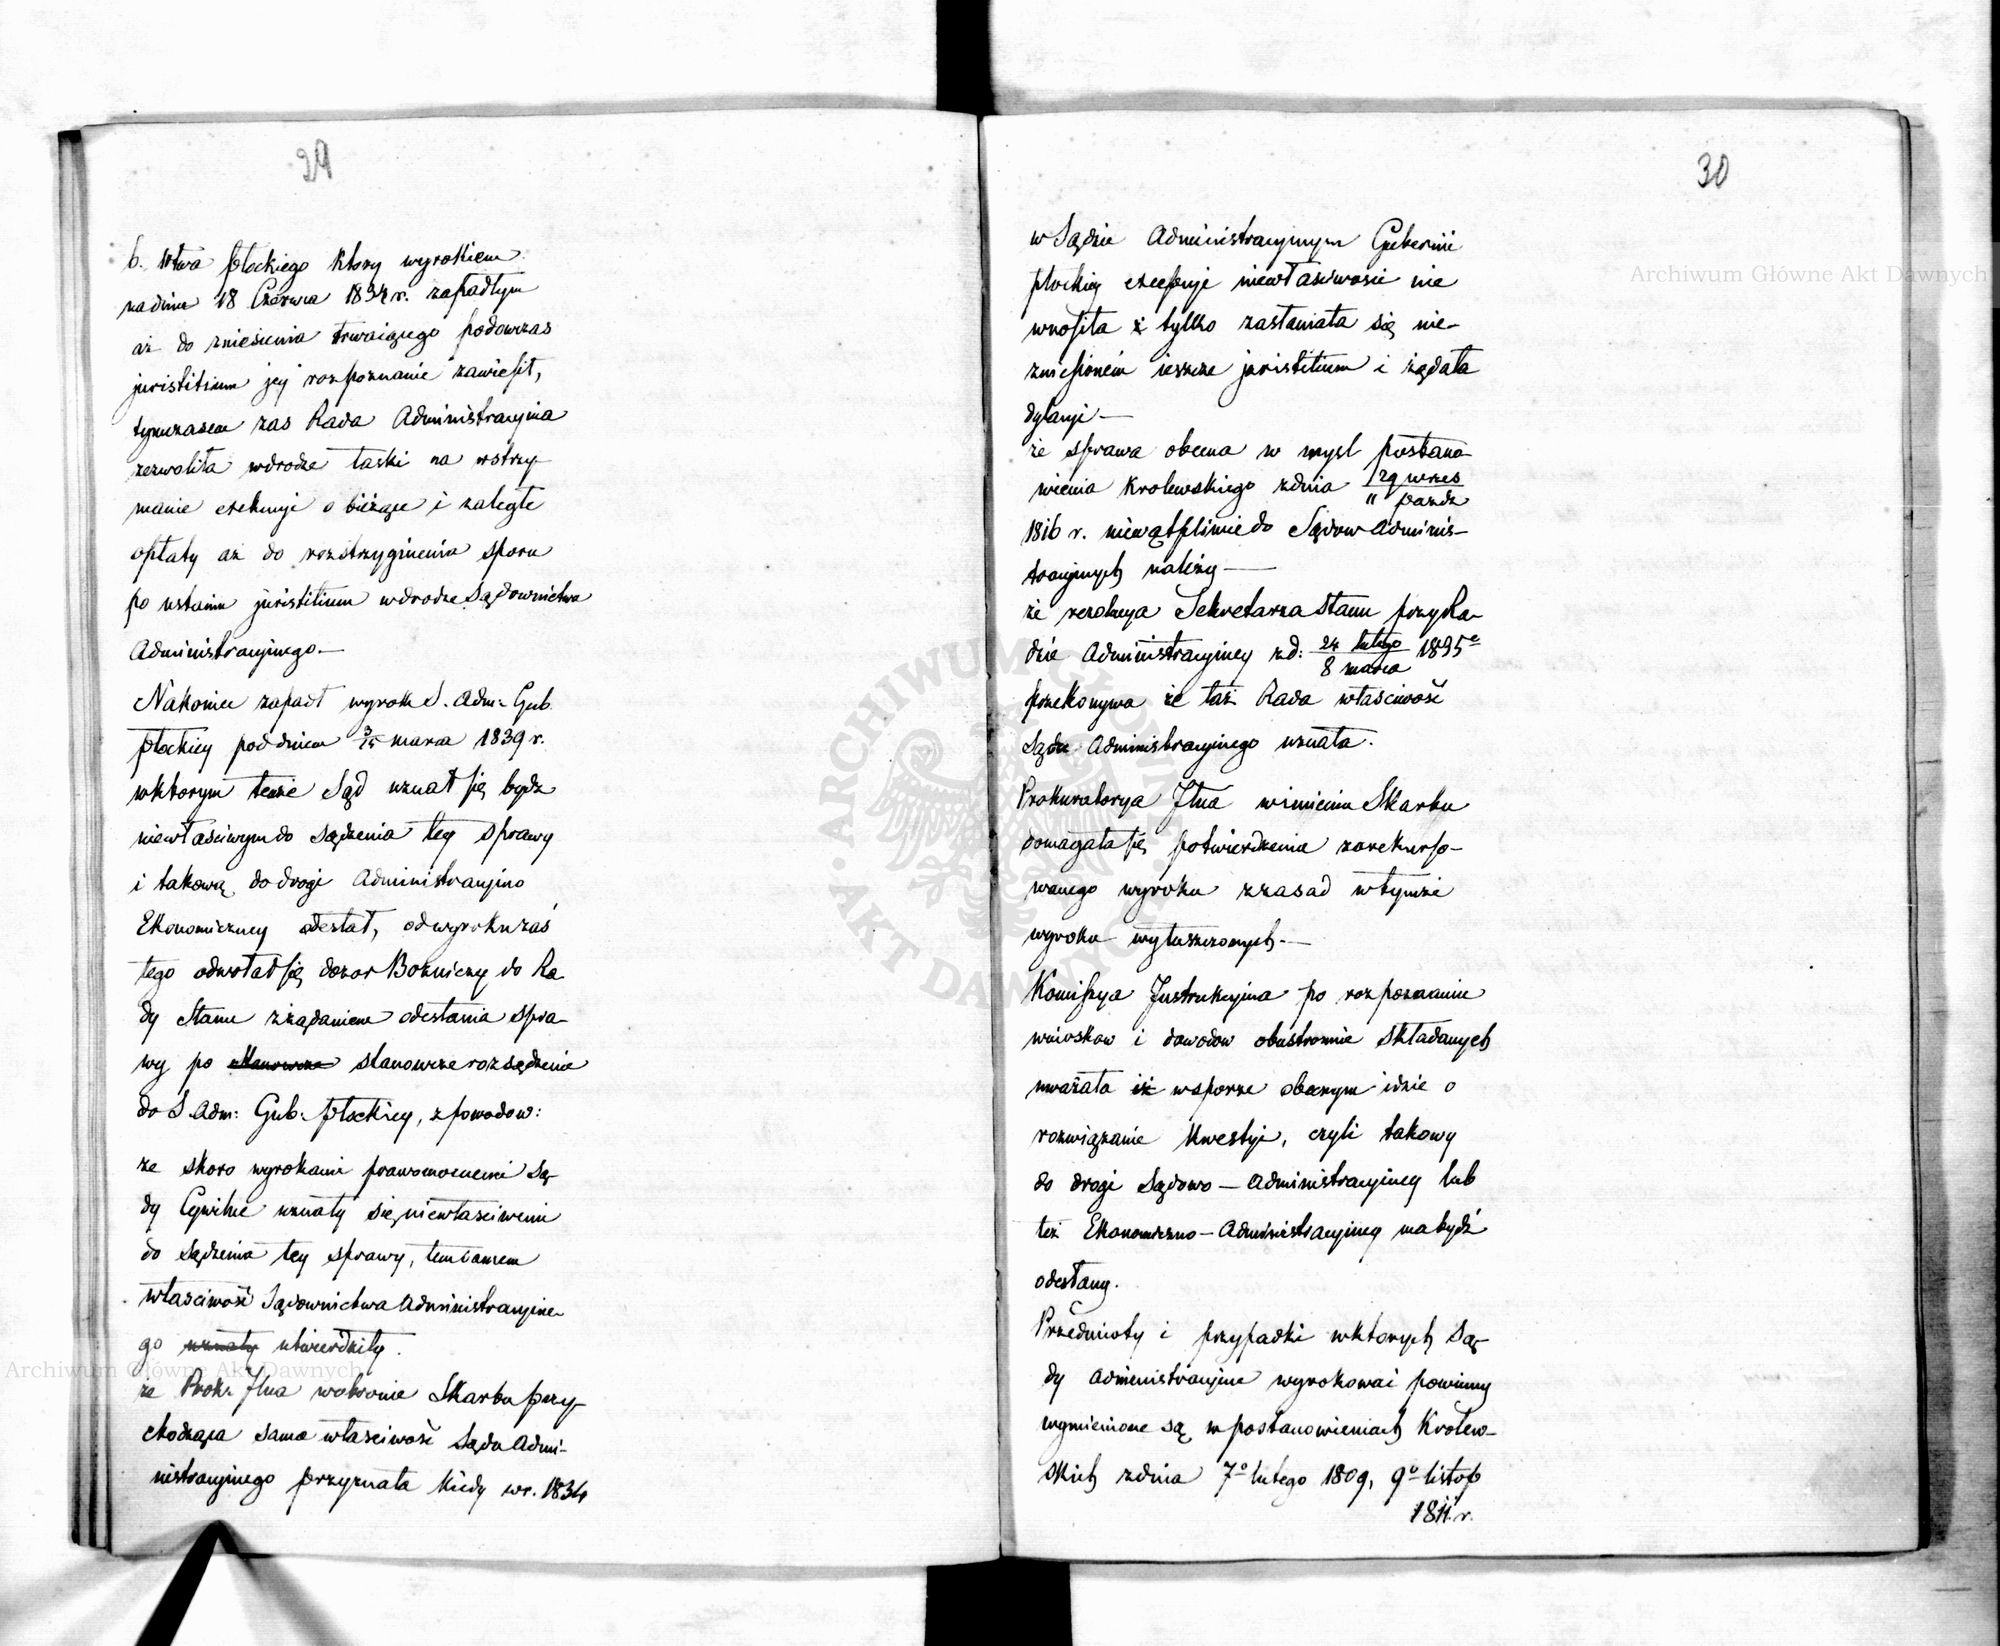 29
b. Wtwa płockiego ktory wyrokiem
nadniu 18 Czerwca 1834 r. zapadłym
aż do zniesienia trwaiącego podowczas
juristitium jey rozpoznanie zawiesił,
tymczasem zas Rada Administracyina
zezwoliła wdrodze łaski na wstrzy-
manie exekucyi o bieżące i zaległe
opłaty aż do rozstrzygnienia sporu
po ustaniu juristitium wdrodze Sądownictwa
Administracyinego.—
Nakoniec zapadł wyrok S. Adm: Gub.
płockiey pod dniem 3/15 marca 1839 r.
wktorym tenże Sąd uznał się bydz
niewłaściwym do sądzenia tey sprawy
i takową do drogi Administracyino
Ekonomiczney odesłał, od wyroku zaś
tego odwołał się dozor Bozniczy do Ra
dy Stanu z żądaniem odesłania spra-
wy po stanowcze stanowcze rozsądzenie
do S. Adm: Gub: płockiey, z powodow:
że skoro wyrokami prawomocnemi Są-
dy Cywilne uznały się niewłaściwemi
do sądzenia tey sprawy, tem samem
właściwość Sądownictwa Administracyine-
go uznały utwierdziły.
że Prok: Jlna wobronie Skarbu przy-
chodząca sama właściwość Sądu Admi-
nistracyinego przyznała kiedy w r. 1834
30
w Sądzie Administracyinym Gubernii
płockiey excepcyi niewłaściwości nie
wnosiła i tylko zasłaniała się nie-
zniesionem ieszcze juristitium i żądała
dylacyi—
że sprawa obecna w mysl postano-
wienia Krolewskiego zdnia 29 wrzes
11 pazdz
1816 r. niewątpliwie do Sądow Adminis-
tracyinych należy—
że rezolucya Sekretarza Stanu przy Ra-
dzie Administracyiney z d: 24 lutego 1835e
8 marca
przekonywa że taż Rada właściwość
Sądu Administracyinego uznała.
Prokuratorya Jlna w imieniu Skarbu
domagała się potwierdzenia zarekurso-
wanego wyroku z zasad w tymże
wyroku wyłuszczonych.—
Komissya Instrukcyina po rozpoznaniu
wniosków i dowodow obustronnie składanych
uważała iż w sporze obecnym idzie o
rozwiązanie kwestyi, czyli takowy
do drogi Sądowo — Administracyiney lub
też Ekonomiczno — Administracyiney ma bydź
odesłany.
Przedmioty i przypadki w ktorych Są-
dy Administracyine wyrokować powinny
wymienione są w postanowieniach Krolew-
skich zdnia 7o lutego 1809, 9o listop
1811 r.
Archiwum Główne Akt Dawnych
Archiwum Główne Akt Dawnych
ARCHIWUM GŁÓWNE AKT DAWNYCH